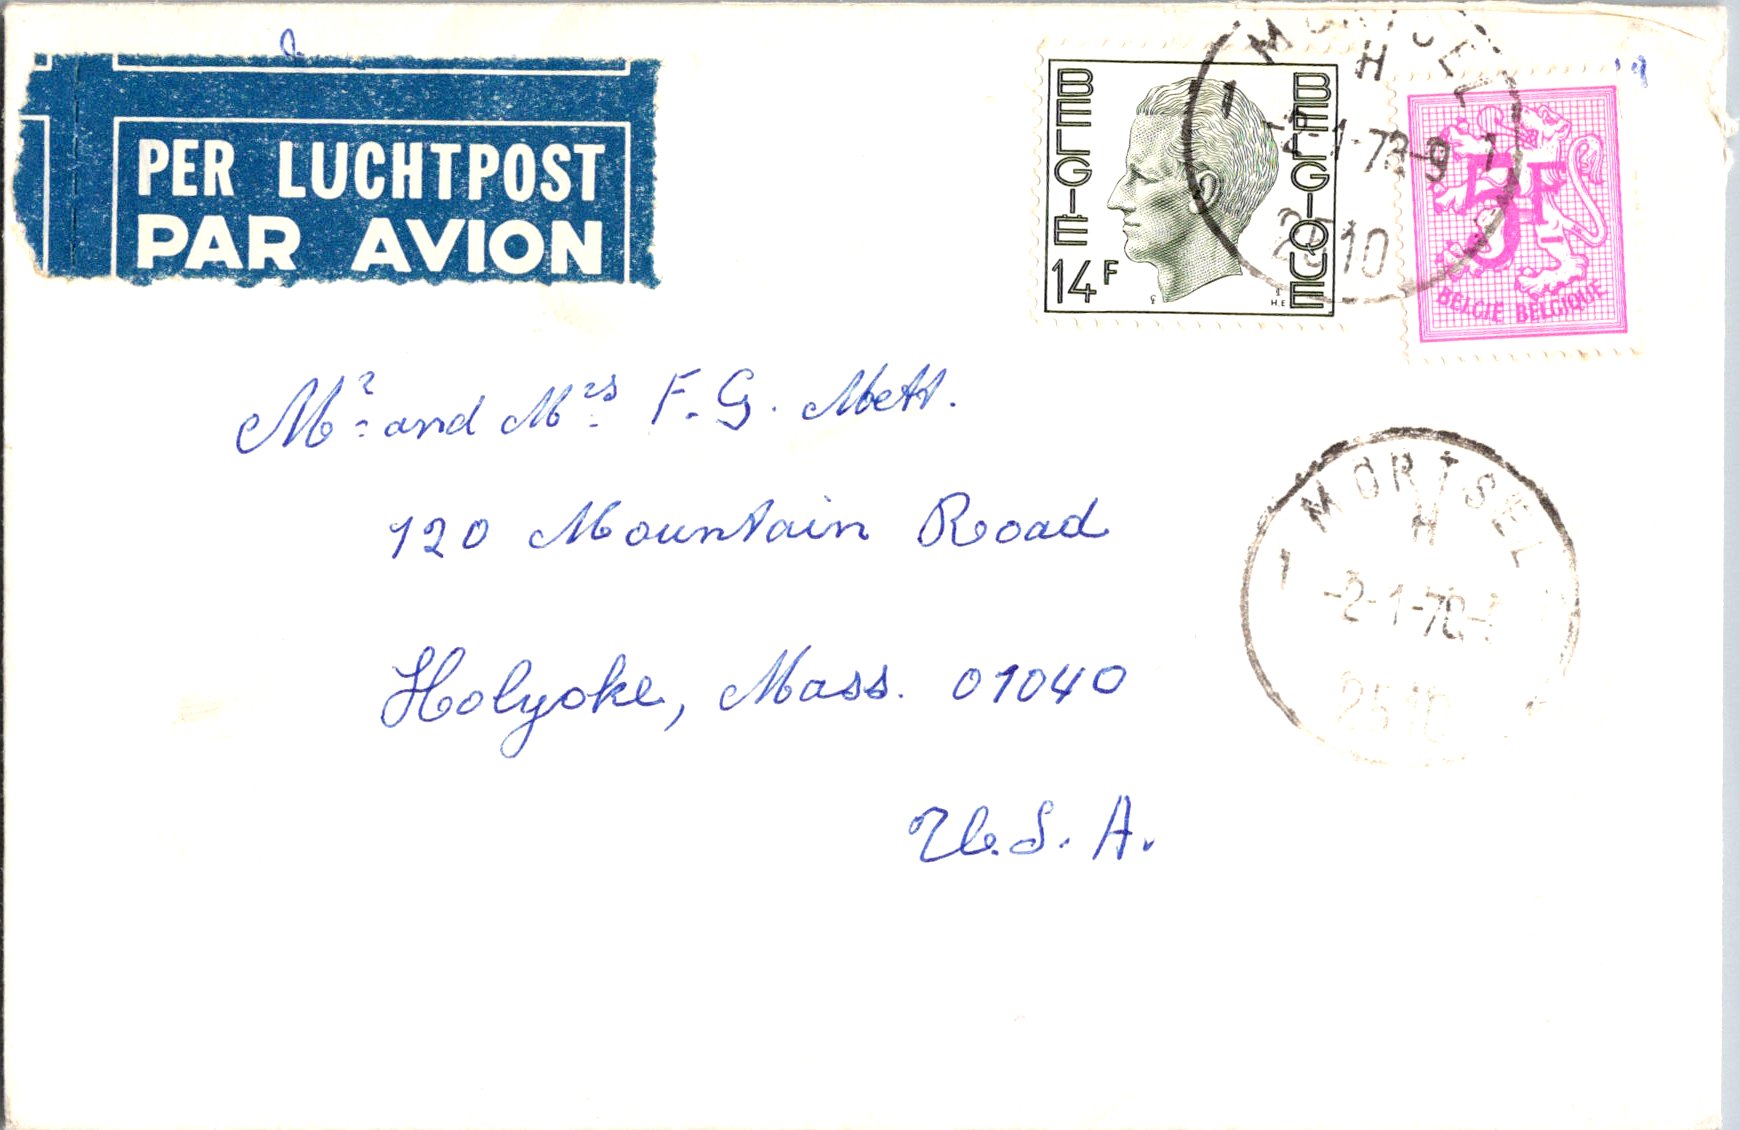 PER LUCHTPOST
PAR AVION
BELGIË
14F
BELGIQUE
H.E
5F
BELGIË BELGIQUE
1
H
2510
Mr and Mrs F. G. Mett.
120 Mountain Road
Holyoke, Mass. 01040
U.S.A.
MORTSEL
H
1
-2-1-78-
2510